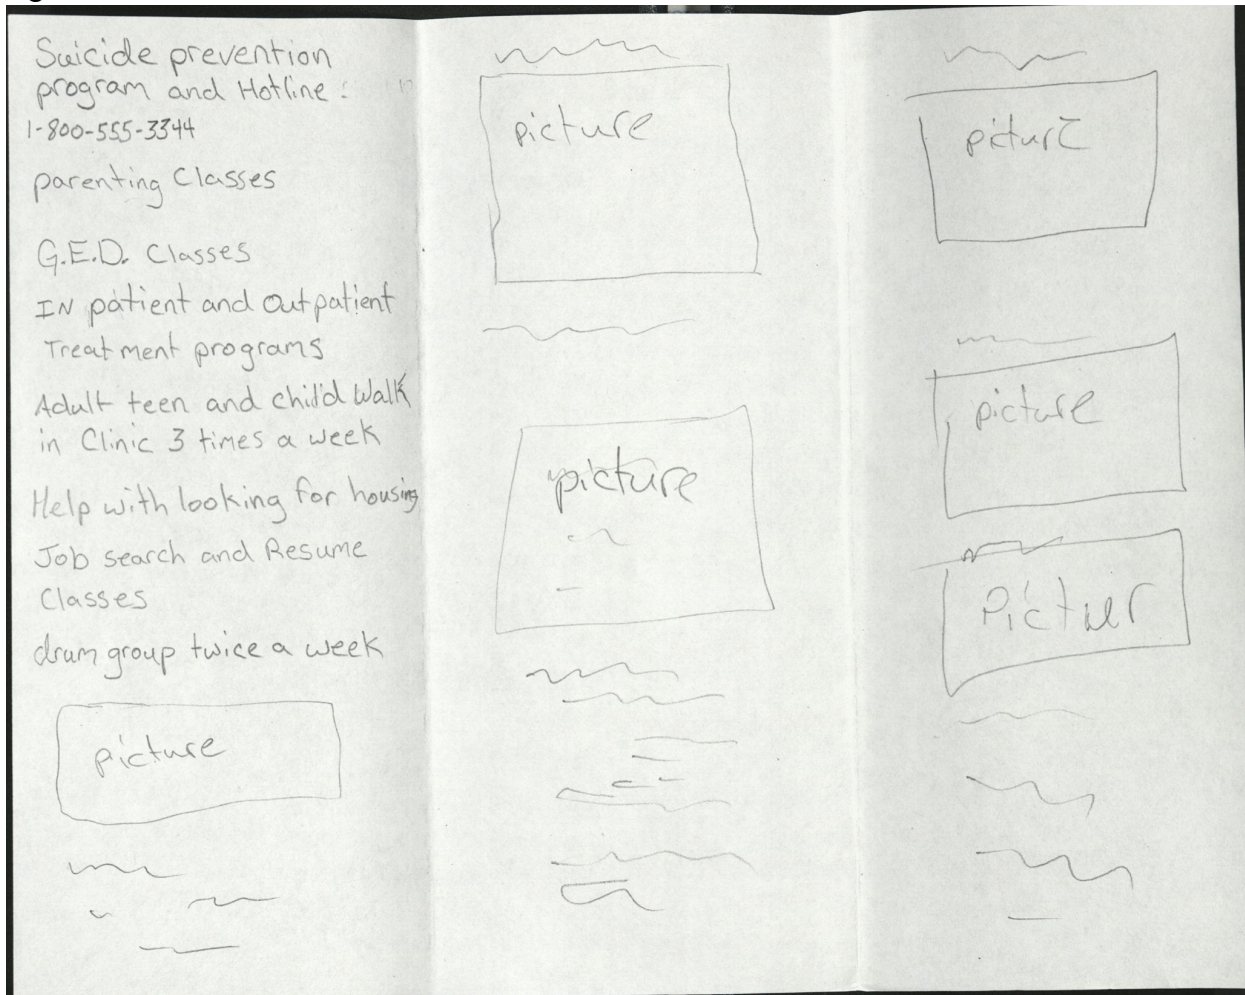 Suicide prevention
program and Hotline:
1-800-555-3344
parenting Classes
G.E.D. Classes
IN patient and Outpatient
Treatment programs
Adult teen and child Walk
in Clinic 3 times a week
Help with looking for housing
Job search and Resume
Classes
drum group twice a week
picture
picture
picture
picture
picture
Pictur